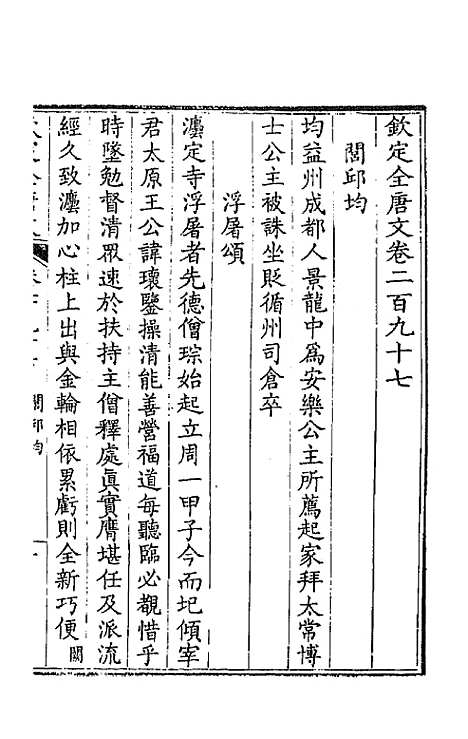 欽定全唐文卷二百九十七
閻邱均
均益州成都人景龍中爲安樂公主所薦起家拜太常博
士公主被誅坐貶循州司倉卒
浮屠頌
灋定寺浮屠者先德僧琮始起立周一甲子今而圮傾宰
君太原王公諱瓌鑒操清能善營福道每聽臨必觀惜乎
時墜勉督清眾速於扶持主僧釋處眞實膺堪任及派流
經久致灋加心柱上出與金輪相依累虧則全新巧便闕
閻邱均
一